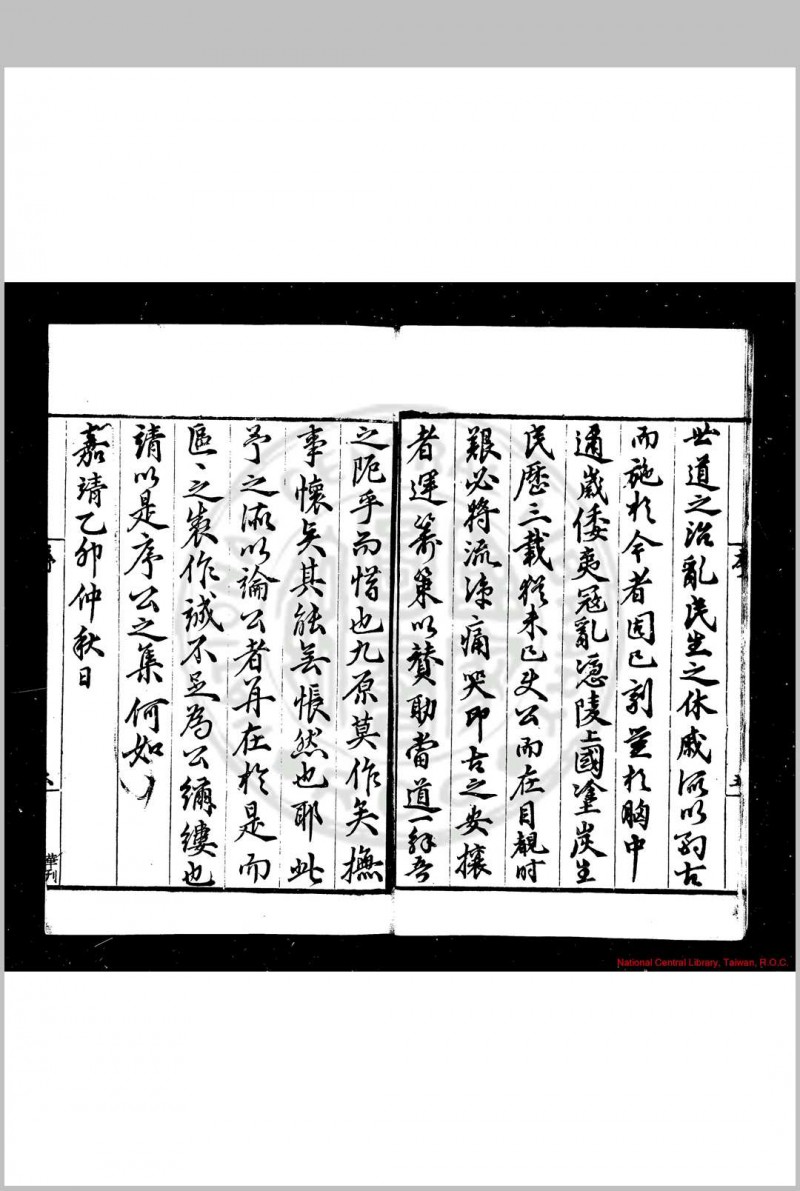 世道之治亂民生之休戚所以酌古
而施於今者固已劃並於胸中
適歲倭夷冦亂憑陵上國塗炭生
民歷三載猶未已使公而在目覩時
艱必將流涕痛哭即古之安攘
者運籌策以贊勛當道一舒吾
之阨乎而惜也九原莫作矣撫
事懷矣其能無悵然也耶此
予之所以論公者再在於是而
區〻之衷作誠不足為公彌縷也
請以是序公之集何如
嘉靖乙卯仲秋日
序
華刊
National Central Library, Taiwan, R.O.C.